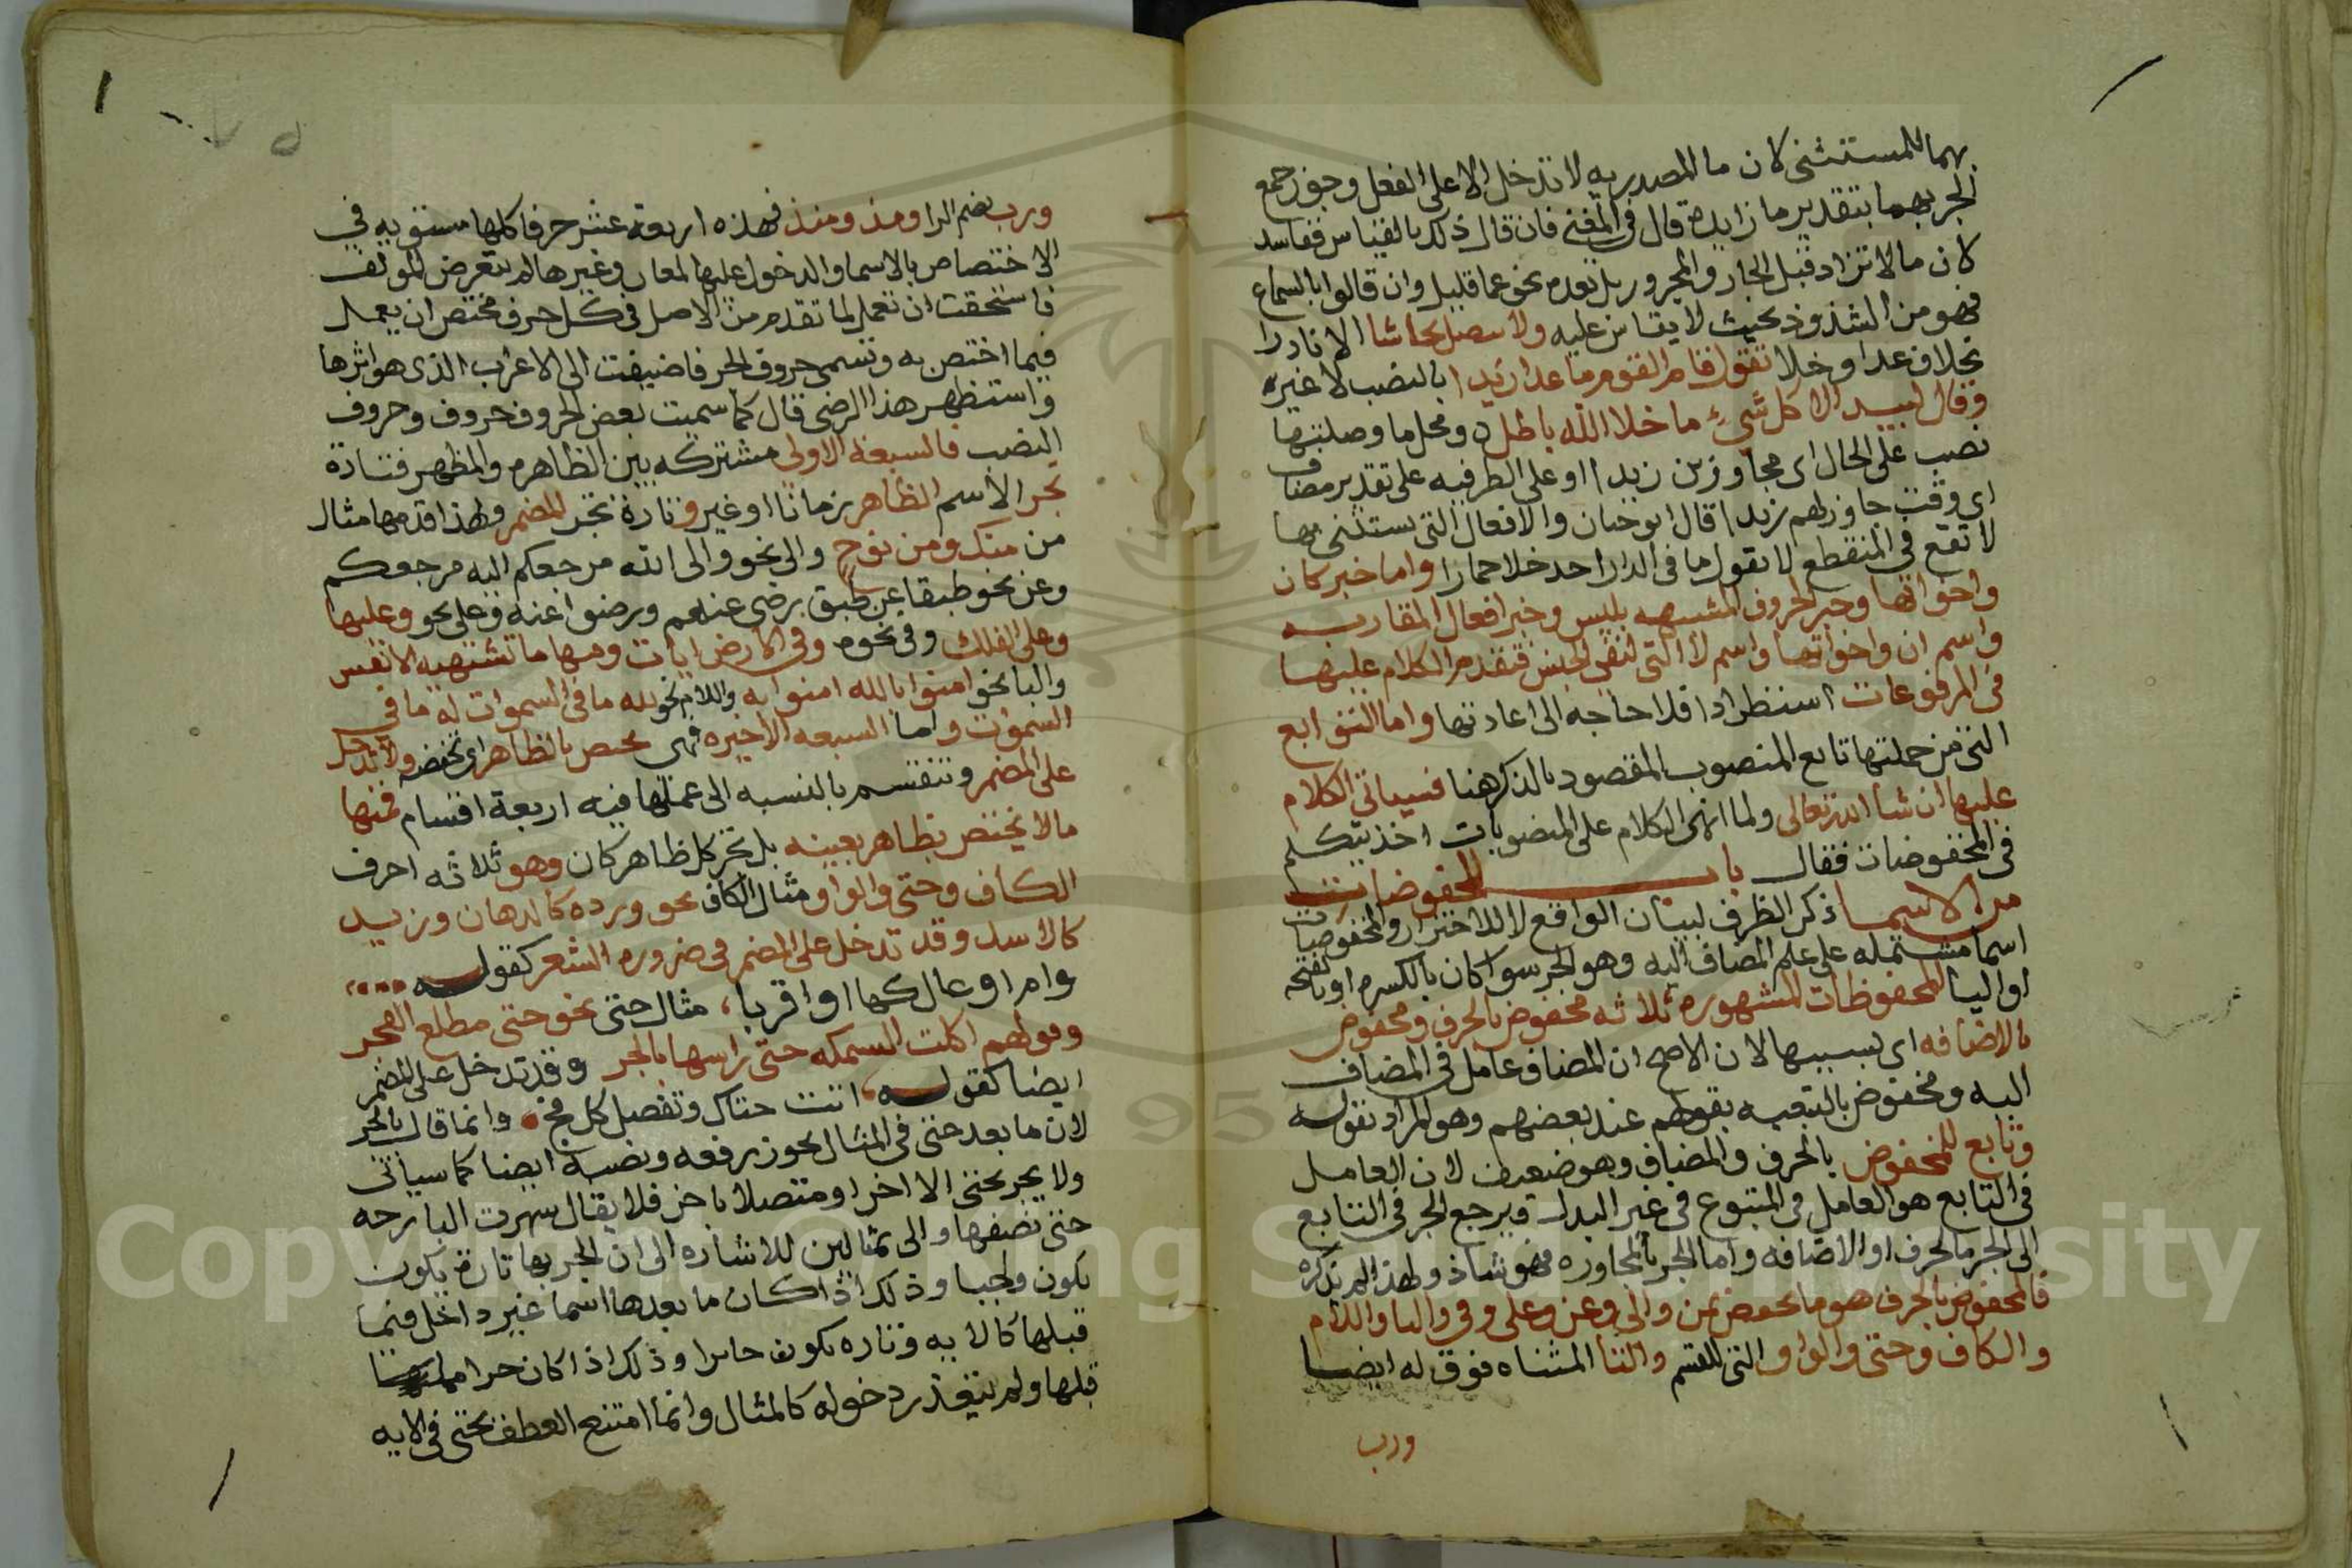 بهما للمستثنى لان ما المصدريه لا تدخل الا على الفعل وجوز جمع
الجر بهما بتقدير ما زايدة قال في المغني فان قال ذلك بالقياس ففاسد
لان ما لا تزاد قبل الجار والمجرور بل بعده نحو عما قليل وان قالوا بالسماع
فهو من الشذوذ بحيث لا يقاس عليه ولا تتصل بحاشا الا نادرا
بخلاف عدا وخلا تقول قام القوم ما عدا زيدا بالنصب لا غيره
وقال لبيد الا كل شيء ما خلا الله باطل ومحل ما وصلتها
نصب على الحال اى مجاوزين زيدا او على الظرفيه على تقدير مضاف
اى وقت مجاوزتهم زيدا قال ابو حيان والافعال التى يستثنى بها
لا تقع في المنقطع لا تقول ما في الدار احد خلا حمارا واما خبر كان
واخواتها وخبر الحروف المشبهه بليس وخبر افعال المقاربه
واسم ان واخواتها واسم لا التى لنفي الجنس فتقدم الكلام عليها
في المرفوعات استطرادا فلا حاجه الى اعادتها واما التوابع
التى من جملتها تابع المنصوب المقصود بالذكر هنا فسياتى الكلام
عليها ان شا الله تعالى ولما انهى الكلام على المنصوبات اخذ يتكلم
في المخفوضات فقال باب المخفوضات
من الاسما ذكر الظرف لبيان الواقع لا للاحتراز والمخفوضات
اسما مشتمله على علم المضاف اليه وهو الجر سوا كان بالكسره او بالفتحه
او اليا المخفوظات المشهوره ثلاثه مخفوض بالحرف ومخفوض
بالاضافه اى بسببها لان الاصح ان المضاف عامل في المضاف
اليه ومخفوض بالتبعيه بقولهم عند بعضهم وهو المراد بقوله
وتابع للمخفوض بالحرف والمضاف وهو ضعيف لان العامل
في التابع هو العامل في المتبوع في غير البدل ويرجع الجر في التابع
الى الجر بالحرف او الاضافه واما الجر بالمجاوره فهو شاذ ولهذا لم يذكره
فالمخفوض بالحرف هو ما يخفض بمن والى وعن وعلى وفي والبا واللام
والكاف وحتى والواو التى للقسم والتا المثناه فوق له ايضا
ورب
ورب بضم الرا ومذ ومنذ فهذه اربعة عشر حرفا كلها مستويه في
الاختصاص بالاسما والدخول عليها لمعان وغيرها لم يتعرض المولف
فاستحقت ان تعمل لما تقدم من الاصل في كل حرف مختص ان يعمل
فيما اختص به وتسمى حروف الجر فاضيفت الى الاعراب الذى هو اثرها
واستظهر هذا الرضى قال كما سميت بعض الحروف حروف وحروف
النصب فالسبعة الاولى مشتركه بين الظاهر والمظهر فتارة
تجر الاسم الظاهر زمانا او غيره وتارة تجر المضمر ولهذا قدمها مثال
من منك ومن نوح والى نحو والى الله مرجعكم اليه مرجعكم
وعن نحو طبقا عن طبق رضى عنهم ورضوا عنه وعلى نحو وعليها
وعلى الفلك وفي نحو وفي الارض ايات وفيها ما تشتهيه الانفس
والبا نحو امنوا بالله امنوا به واللام نحو لله ما في السموات له ما في
السموات واما السبعه الاخيره فهى تختص بالظاهر اى تخفضه ولا تدخل
على المضمر وتنقسم بالنسبه الى عملها فيه اربعة اقسام فمنها
ما لا يختص بظاهر بعينه بل تجر كل ظاهر كان وهو ثلاثه احرف
الكاف وحتى والواو مثال الكاف نحو ورده كالدهان وزيد
كالاسد وقد تدخل على المضمر في ضروره الشعر كقوله
وام اوعال كها او اقربا، مثال حتى نحو حتى مطلع الفجر
وقولهم اكلت السمكه حتى راسها بالجر وقد تدخل على المضمر
ايضا كقوله اتت حتاك وتقصد كل فج وانما قال بالجر
لان ما بعد حتى في المثال يجوز رفعه ونصبه ايضا كما سياتى
ولا يجر بحتى الا اخرا او متصلا باخر فلا يقال سهرت البارحه
حتى نصفها والى بمثالين للاشاره الى ان الجر بها تارة يكون
يكون واجبا وذلك اذا كان ما بعدها اسما غير داخل فيما
قبلها كالايه وتاره يكون جايزا وذلك اذا كان جزا مما
قبلها ولم يتعذر دخوله كالمثال وانما امتنع العطف بحتى في الايه